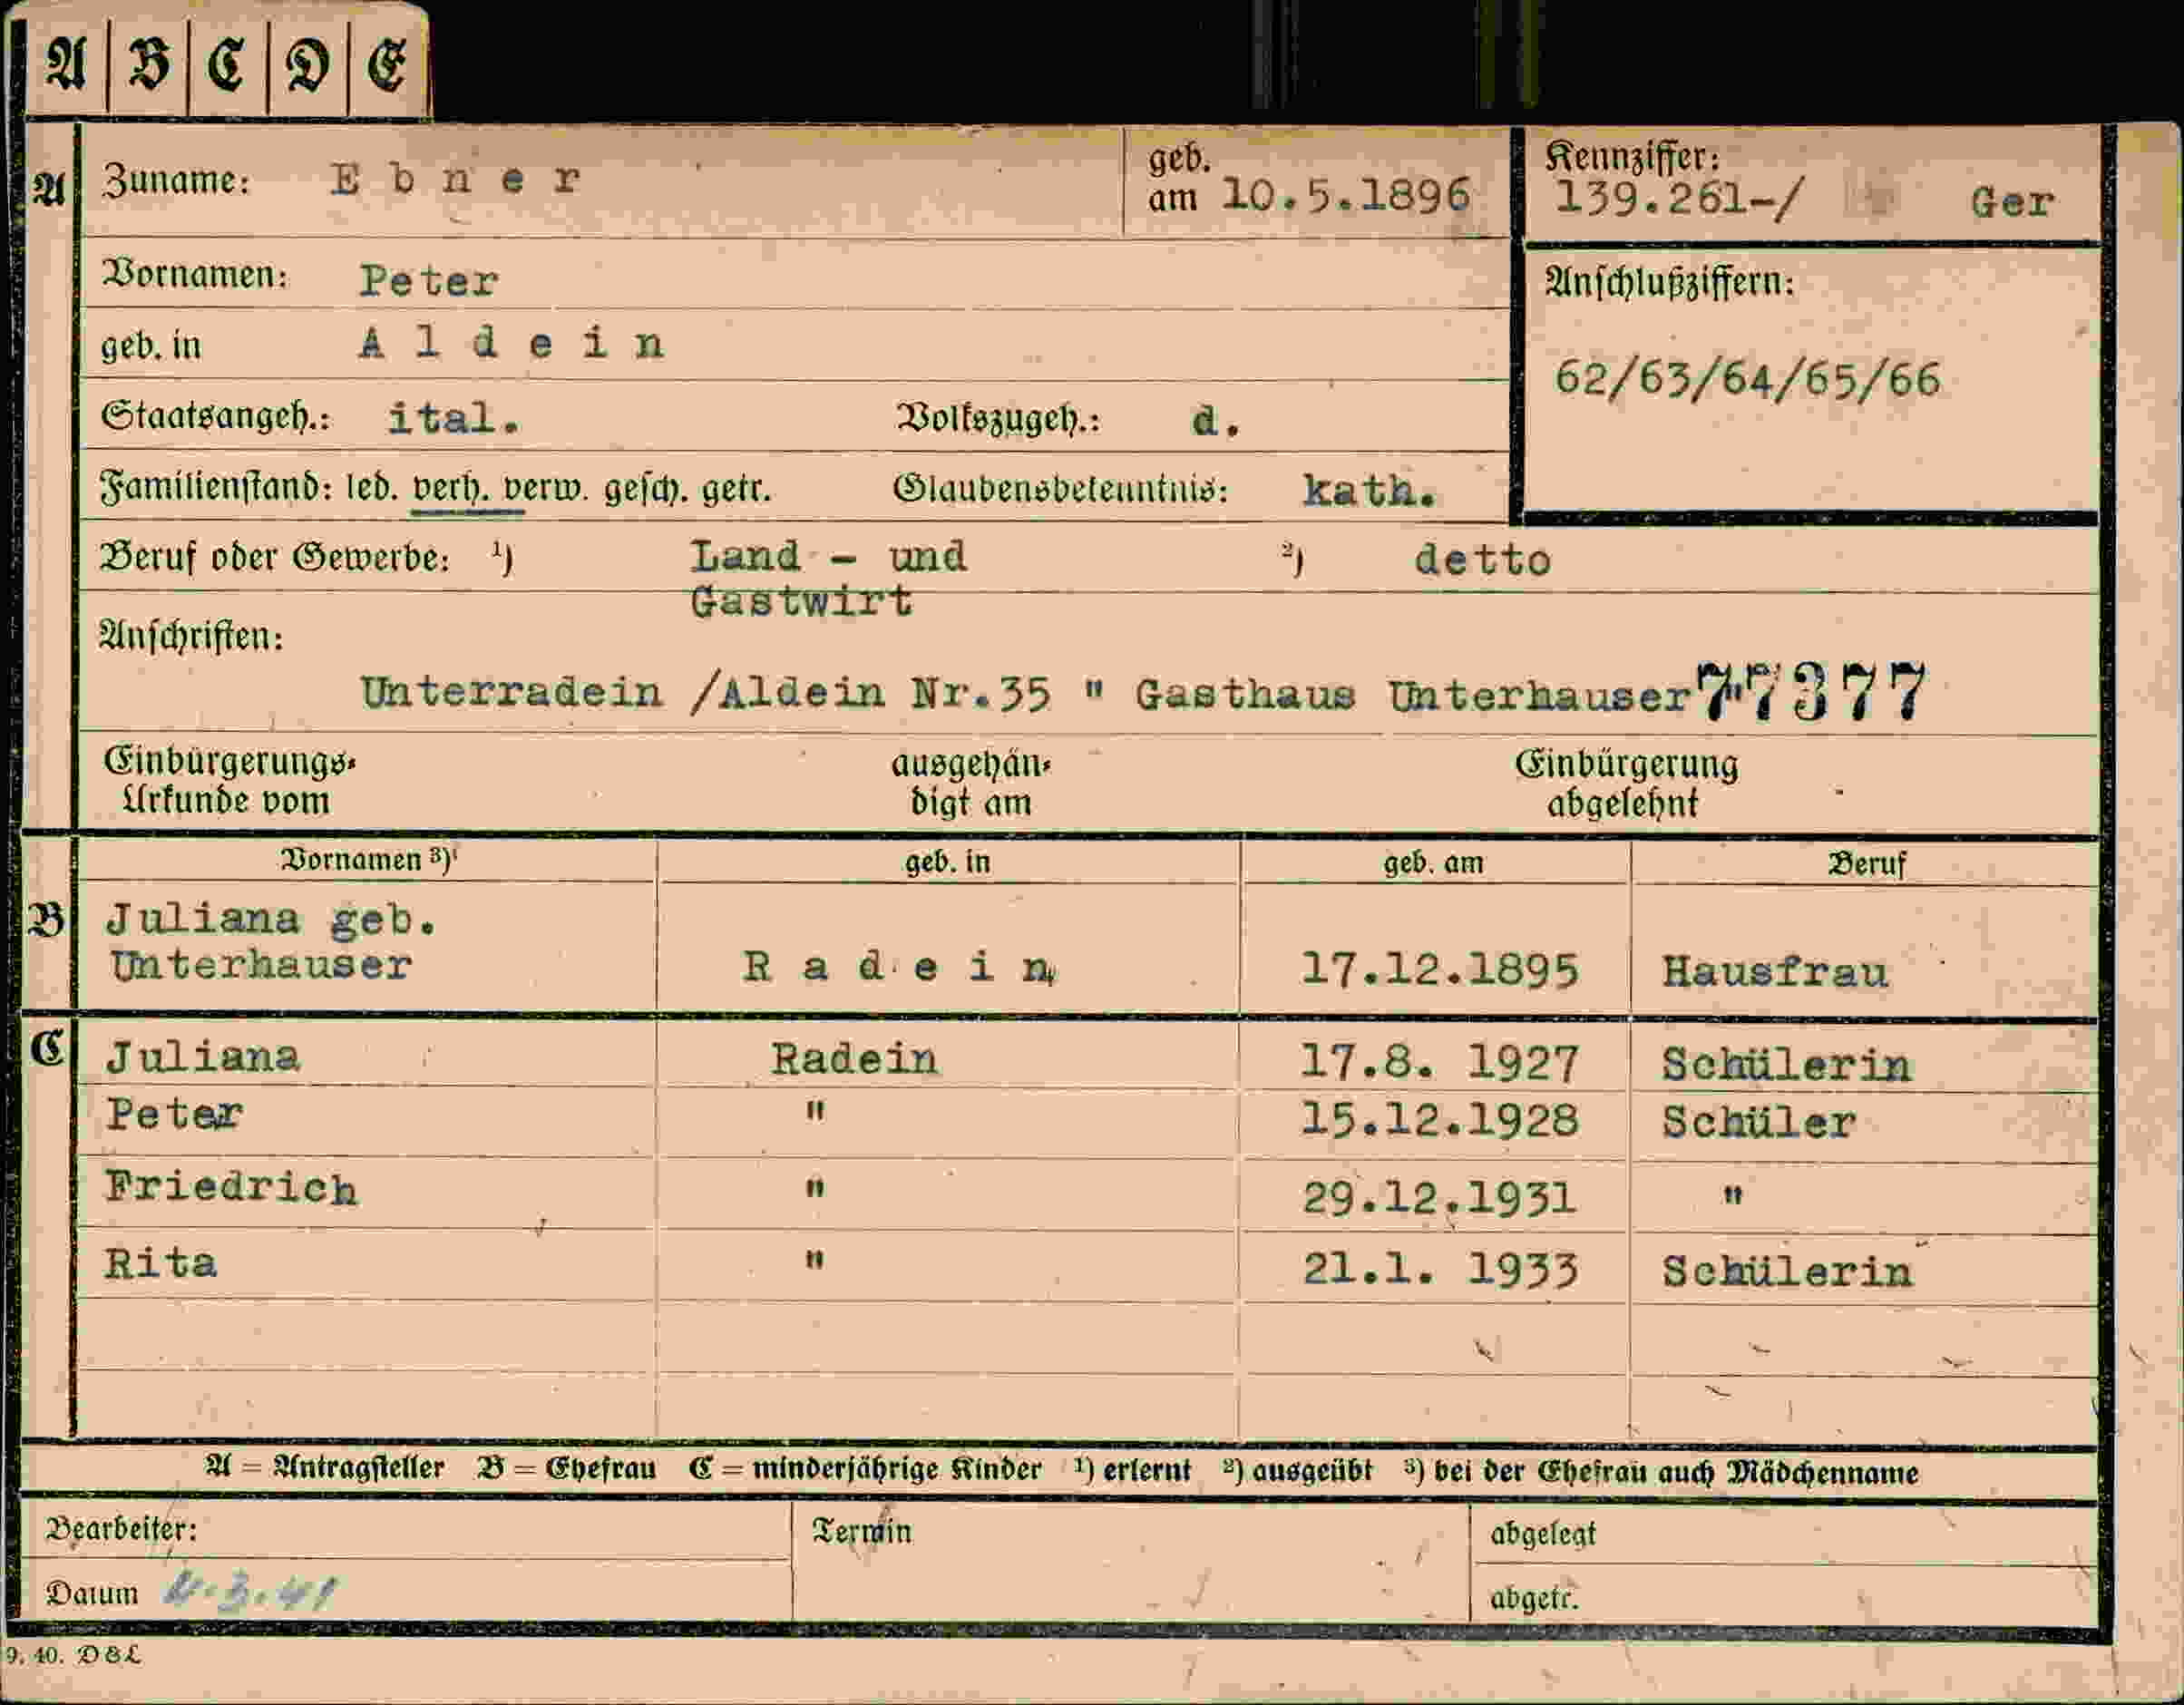 A B C D E
A Zuname: Ebner geb. am 10.5.1896 Kennziffer: 139.261-/ Ger
Vornamen: Peter Anschlußziffern:
geb. in Aldein
62/63/64/65/66
Staatsangeh.: ital. Volkszugeh.: d.
Familienstand: led. verh. verw. gesch. getr. Glaubensbekenntnis: kath.
Beruf oder Gewerbe: 1) Land - und 2) detto
Gastwirt
Anschriften:
Unterradein /Aldein Nr.35 " Gasthaus Unterhauser" 77377
Einbürgerungs- ausgehän- Einbürgerung
Urkunde vom digt am abgelehnt
Vornamen 3) geb. in geb. am Beruf
B Juliana geb.
Unterhauser Radein 17.12.1895 Hausfrau
C Juliana Radein 17.8. 1927 Schülerin
Peter " 15.12.1928 Schüler
Friedrich " 29.12.1931 "
Rita " 21.1. 1933 Schülerin
A = Antragsteller B = Ehefrau C = minderjährige Kinder 1) erlernt 2) ausgeübt 3) bei der Ehefrau auch Mädchenname
Bearbeiter: Termin abgelegt
Datum abgetr.
9. 40. D&L